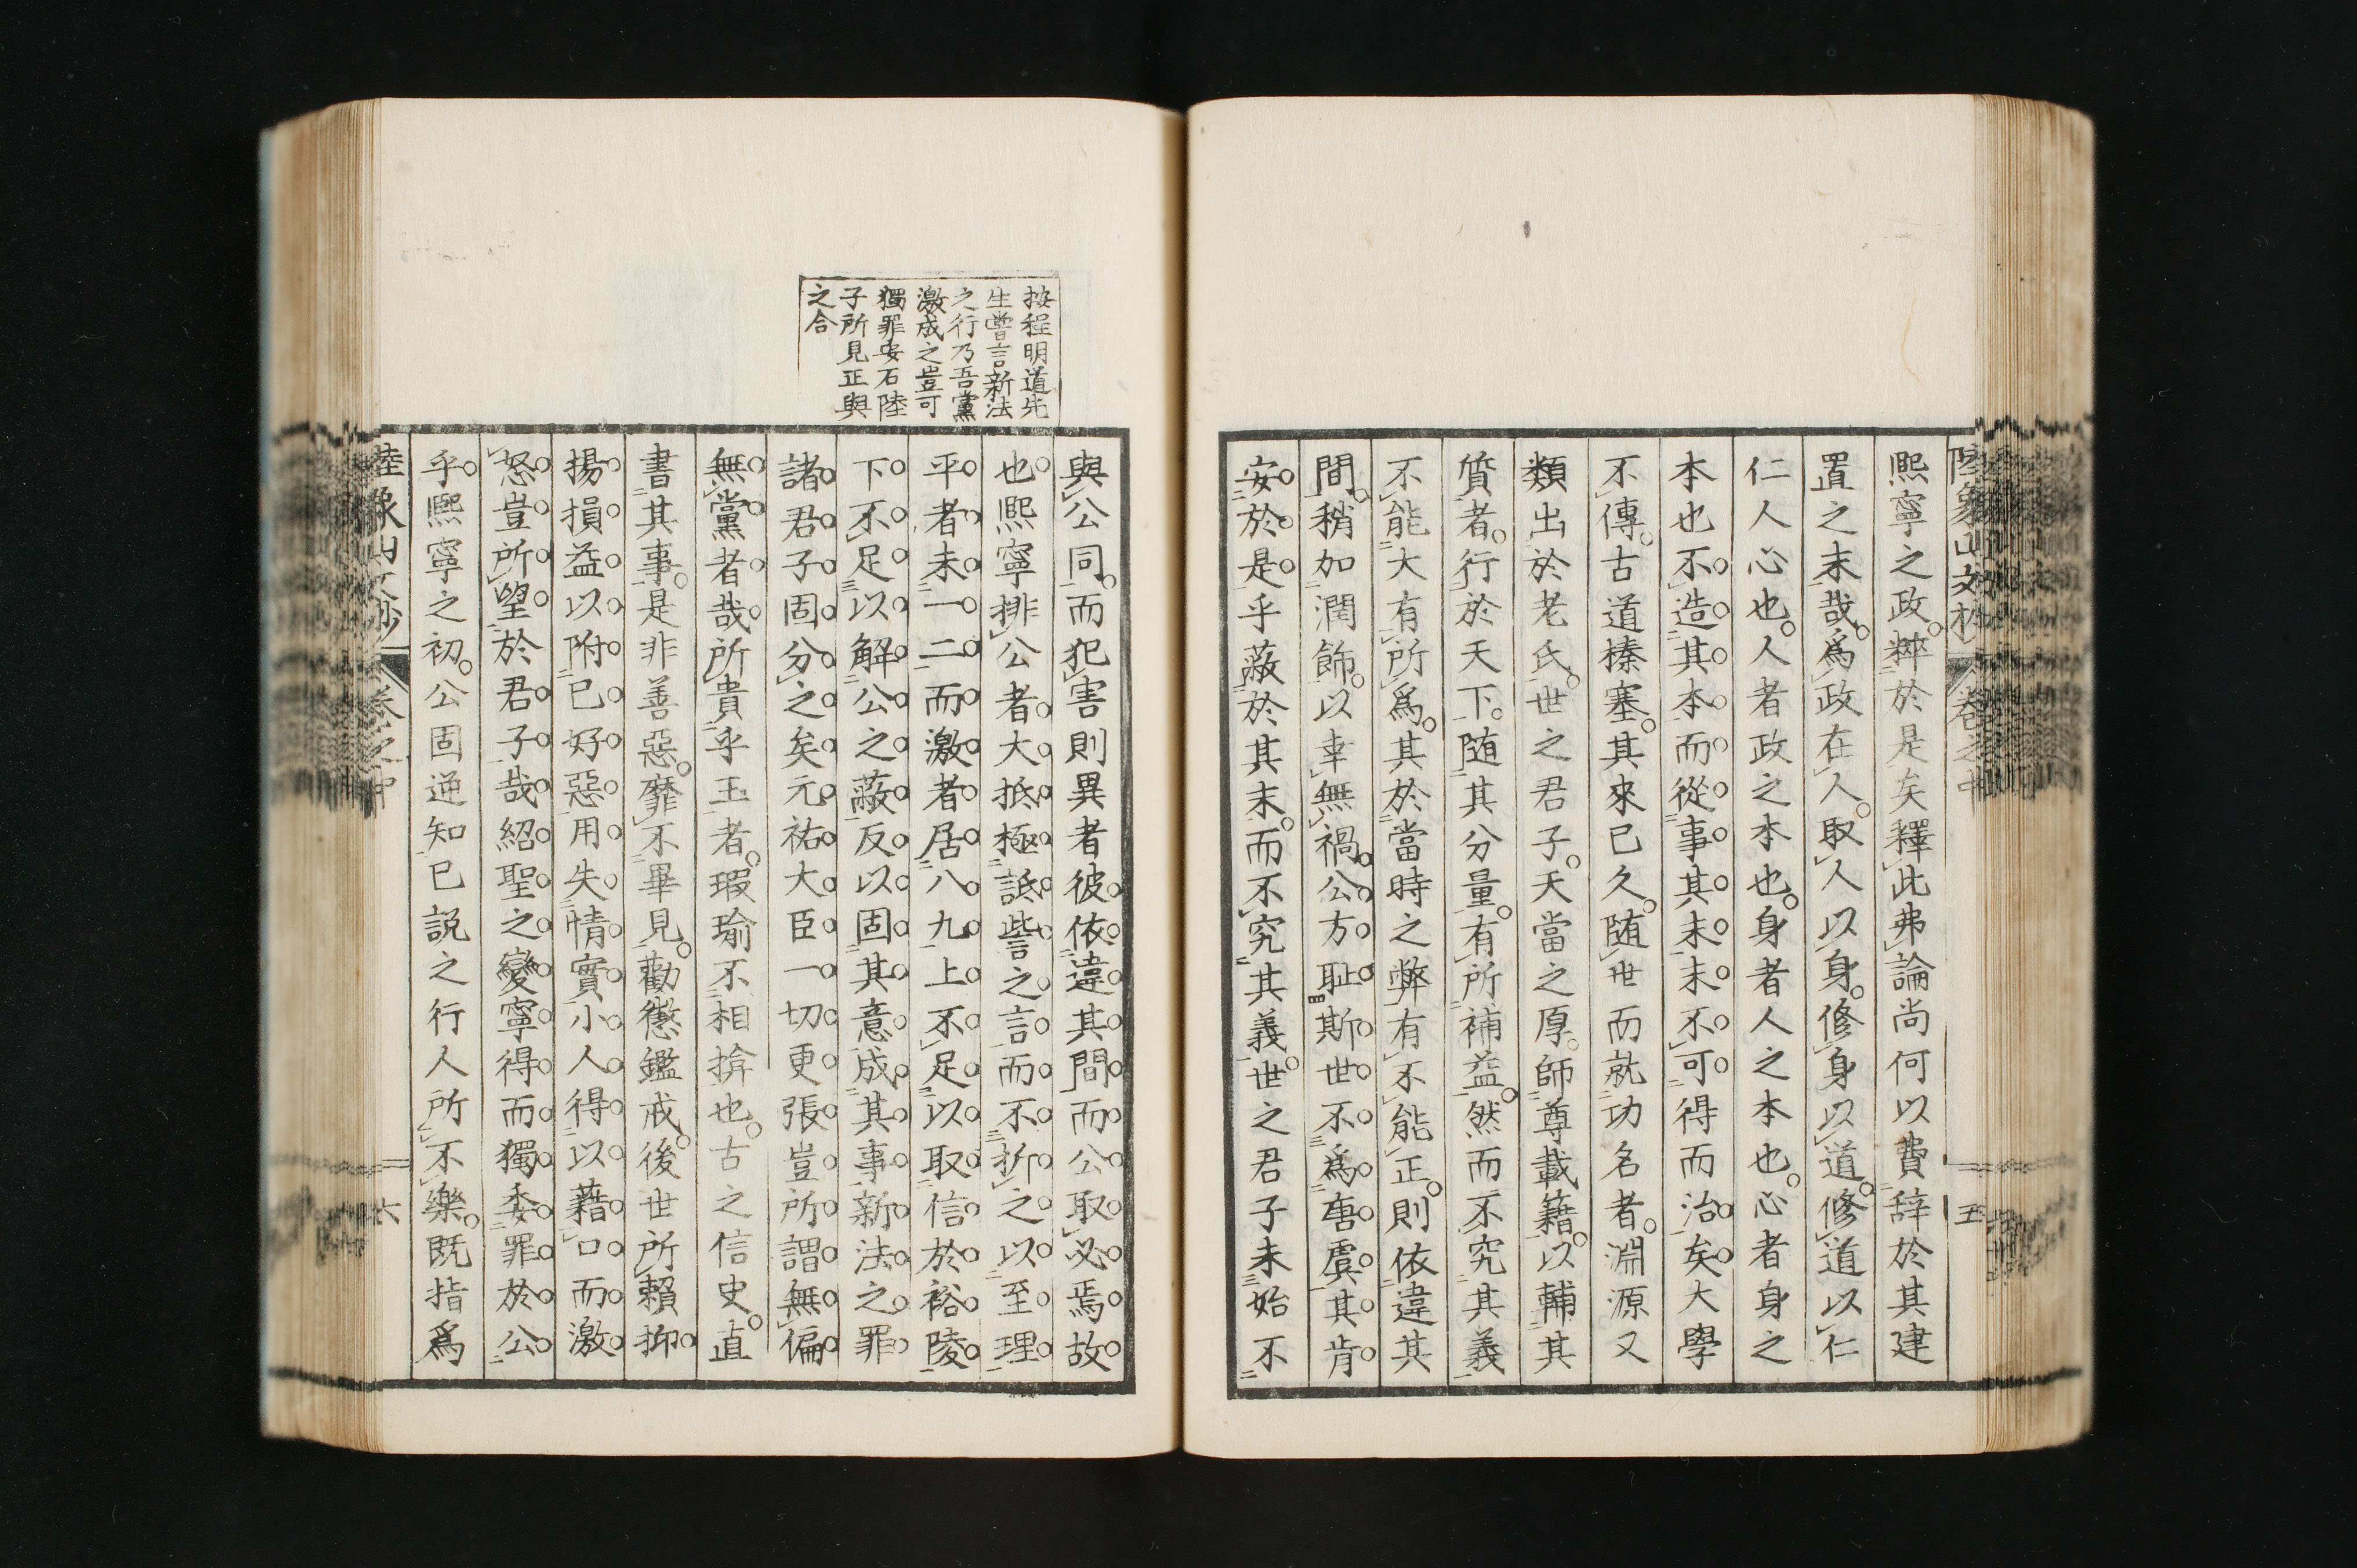 陸象山文抄 卷之中 五
熙寧之政。粹於是矣釋此弗論尚何以費辭於其建
置之末哉。爲政在人。取人以身。修身以道。修道以仁
仁人心也。人者政之本也。身者人之本也。心者身之
本也不造其本而從事其末末不可得而治矣大學
不傳。古道榛塞。其來已久。随世而就功名者。淵源又
類出於老氏。世之君子。天當之厚。師尊載籍。以輔其
質者。行於天下。随其分量。有所補益。然而不究其義
不能大有所爲。其於當時之弊有不能正。則依違其
間。稍加潤飾。以幸無禍。公方恥斯世不爲唐虞其肯
安於是乎蔽於其末。而不究其義。世之君子未始不
按程明道先
生嘗言新法
之行乃吾黨
激成之豈可
獨罪安石陸
子所見正與
之合
與公同。而犯害則異者彼依違其間而公取必焉故
也熙寧排公者大抵極詆訾之言而不折之以至理
平者未一二而激者居八九上不足以取信於裕陵
下不足以解公之蔽反以固其意成其事新法之罪
諸君子固分之矣元祐大臣一切更張豈所謂無偏
無黨者哉所貴乎玉者。瑕瑜不相揜也。古之信史。直
書其事。是非善惡。靡不畢見。勸懲鑑戒。後世所賴抑
揚損益以附己好惡用失情實小人得以藉口而激
怒豈所望於君子哉紹聖之變寧得而獨委罪於公
乎。熙寧之初。公固逆知己說之行人所不樂。既指爲
陸象山文抄 卷之中 六